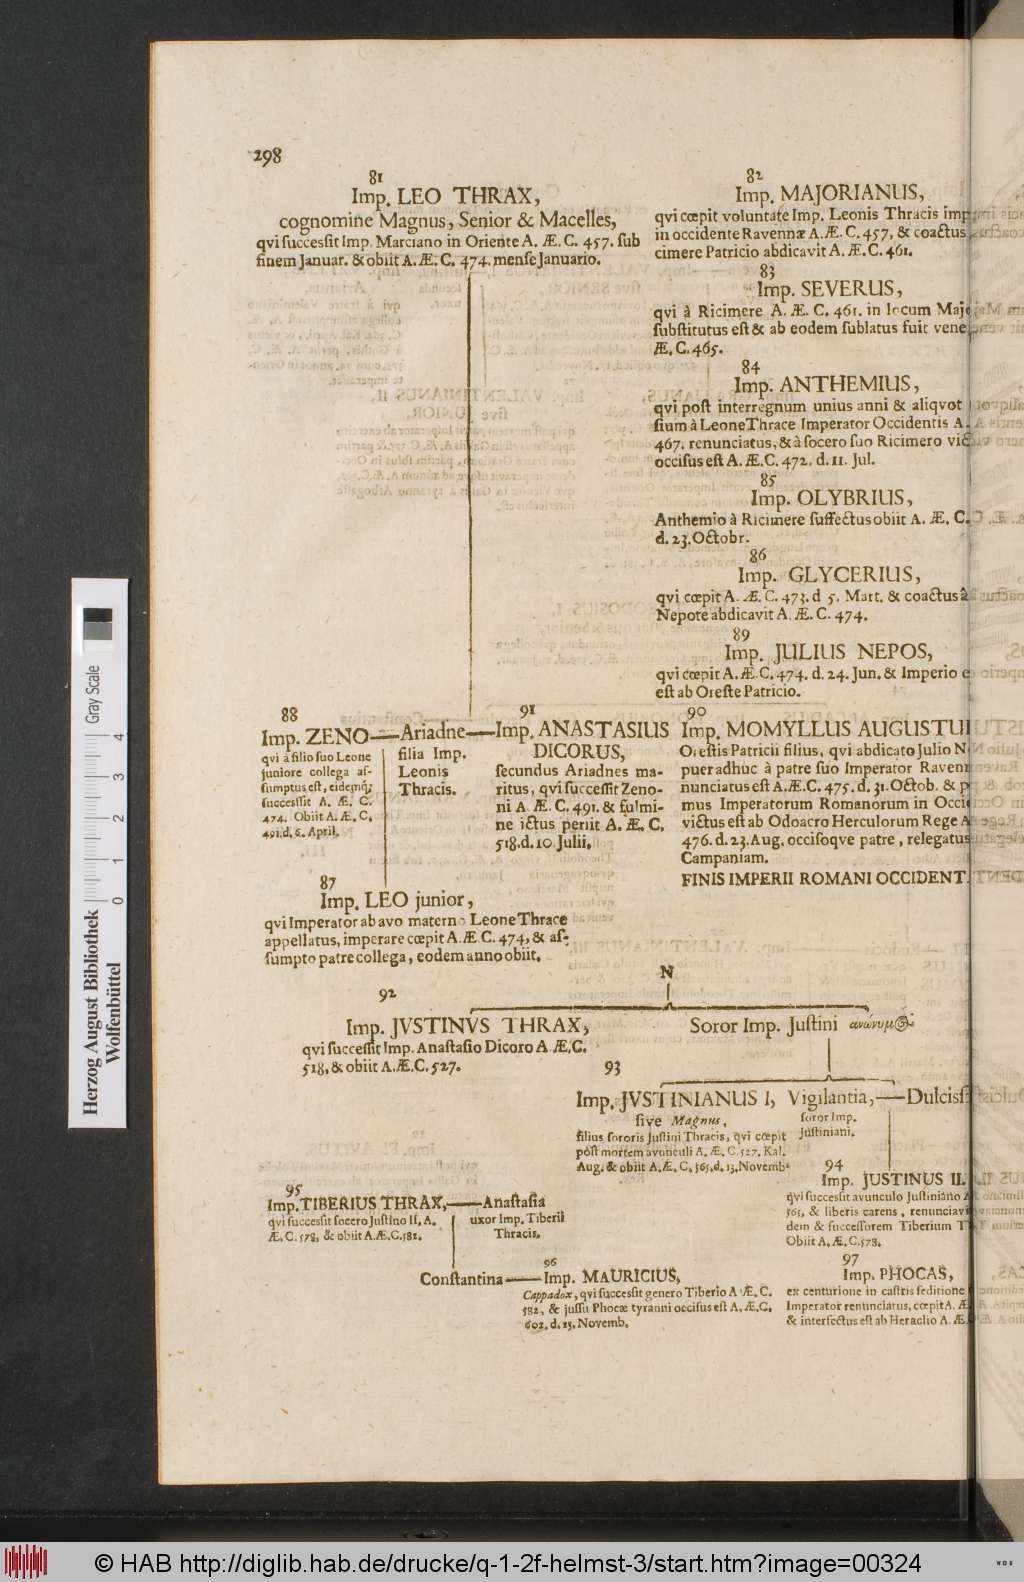 298
81
Imp. LEO THRAX,
cognomine Magnus, Senior & Macelles,
qvi successit Imp. Marciano in Oriente A. Æ. C. 457. sub
finem Januar. & obiit A. Æ. C. 474. mense Januario.
82
Imp. MAJORIANUS,
qvi cœpit voluntate Imp. Leonis Thracis imp
in occidente Ravennæ A. Æ. C. 457, & coactus
cimere Patricio abdicavit A. Æ. C. 461.
83
Imp. SEVERUS,
qvi à Ricimere A. Æ. C. 461. in locum Majo
substitutus est & ab eodem sublatus fuit vene
Æ. C. 465.
84
Imp. ANTHEMIUS,
qvi post interregnum unius anni & aliqvot
sium à Leone Thrace Imperator Occidentis A.
467. renunciatus, & à socero suo Ricimero vic
occisus est A. Æ. C. 472. d. 11. Jul.
85
Imp. OLYBRIUS,
Anthemio à Ricimere suffectus obiit A. Æ. C.
d. 23. Octobr.
86
Imp. GLYCERIUS,
qvi cœpit A. Æ. C. 473. d 5. Mart. & coactus à
Nepote abdicavit A. Æ. C. 474.
89
Imp. JULIUS NEPOS,
qvi cœpit A. Æ. C. 474. d. 24. Jun. & Imperio e
est ab Oreste Patricio.
88
Imp. ZENO—
qvi à filio suo Leone
juniore collega as-
sumptus est, eidemq;
successit A. Æ. C.
474. Obiit A. Æ. C.
491. d. 6. April.
Ariadne—
filia Imp.
Leonis
Thracis.
91
Imp. ANASTASIUS
DICORUS,
secundus Ariadnes ma-
ritus, qvi successit Zeno-
ni A Æ. C. 491. & fulmi-
ne ictus periit A. Æ. C.
518. d. 10 Julii.
90
Imp. MOMYLLUS AUGUSTUL
Orestis Patricii filius, qvi abdicato Julio N
puer adhuc à patre suo Imperator Ravenn
nunciatus est A. Æ. C. 475. d. 31. Octob. & p
mus Imperatorum Romanorum in Occi
victus est ab Odoacro Herculorum Rege A
476. d. 23. Aug. occisoqve patre, relegatus
Campaniam.
FINIS IMPERII ROMANI OCCIDENT.
87
Imp. LEO junior,
qvi Imperator ab avo materno Leone Thrace
appellatus, imperare cœpit A. Æ C. 474, & as-
sumpto patre collega, eodem anno obiit.
N
92
Imp. JVSTINVS THRAX,
qvi successit Imp. Anastasio Dicoro A Æ. C.
518, & obiit A. Æ. C. 527.
Soror Imp. Justini ἀνώνυμ⊕
93
Imp. JVSTINIANUS I,
sive Magnus,
filius sororis Justini Thracis, qvi cœpit
post mortem avunculi A. Æ. C. 527. Kal.
Aug. & obiit A. Æ. C. 565. d. 13. Novemb.
Vigilantia,—Dulciss
soror Imp.
Justiniani.
94
Imp. JUSTINUS II.
qvi successit avunculo Justiniano A
565, & liberis carens, renunciavi
dem & successorem Tiberium T
Obiit A. Æ. C. 578.
95
Imp. TIBERIUS THRAX,—Anastasia
qvi successit socero Justino II, A.
Æ. C. 578, & obiit A. Æ. C. 582.
uxor Imp. Tiberii
Thracis.
96
Constantina—Imp. MAURICIUS,
Cappadox, qvi successit genero Tiberio A Æ. C.
582, & jussu Phocæ tyranni occisus est A. Æ. C.
602. d. 23. Novemb.
97
Imp. PHOCAS,
ex centurione in castris seditione
Imperator renunciatus, cœpit A. Æ
& interfectus est ab Heraclio A. Æ.
Gray Scale
0 1 2 3 4
Herzog August Bibliothek
Wolfenbüttel
© HAB http://diglib.hab.de/drucke/q-1-2f-helmst-3/start.htm?image=00324